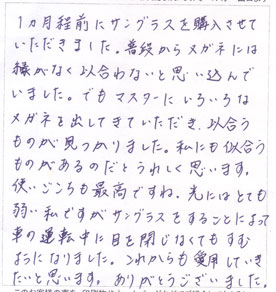 1ヵ月程前にサングラスを購入させて
いただきました。普段からメガネには
縁がなく似合わないと思い込んで
いました。でもマスターにいろいろな
メガネを出してきていただき、似合う
ものが見つかりました。私にも似合う
ものがあるのだとうれしく思います。
使いごこちも最高ですね。光にはとても
弱い私ですがサングラスをすることによって
車の運転中に目を閉じなくてもすむ
ようになりました。これからも愛用していき
たいと思います。ありがとうございました。